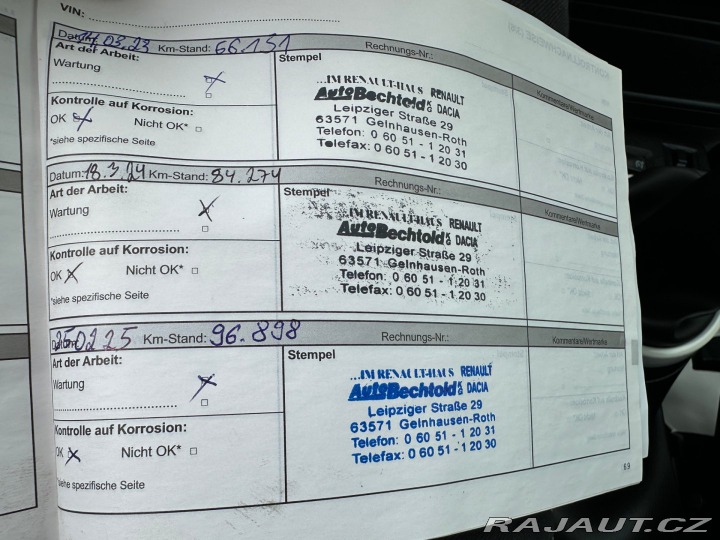 VIN:
Datum: 14.03.23 Km-Stand: 66.151 Rechnungs-Nr.:
Art der Arbeit:
Wartung
Kontrolle auf Korrosion:
OK Nicht OK*
*siehe spezifische Seite
Stempel
...IM RENAULT-HAUS RENAULT
AutoBechtold KG DACIA
Leipziger Straße 29
63571 Gelnhausen-Roth
Telefon: 0 60 51 - 1 20 31
Telefax: 0 60 51 - 1 20 30
Kommentare/Wertmarke
Datum: 18.3.24 Km-Stand: 84.274 Rechnungs-Nr.:
Art der Arbeit:
Wartung
Kontrolle auf Korrosion:
OK Nicht OK*
*siehe spezifische Seite
Stempel
...IM RENAULT-HAUS RENAULT
AutoBechtold KG DACIA
Leipziger Straße 29
63571 Gelnhausen-Roth
Telefon: 0 60 51 - 1 20 31
Telefax: 0 60 51 - 1 20 30
Kommentare/Wertmarke
Datum: 25.02.25 Km-Stand: 96.898 Rechnungs-Nr.:
Art der Arbeit:
Wartung
Kontrolle auf Korrosion:
OK Nicht OK*
*siehe spezifische Seite
Stempel
...IM RENAULT-HAUS RENAULT
AutoBechtold KG DACIA
Leipziger Straße 29
63571 Gelnhausen-Roth
Telefon: 0 60 51 - 1 20 31
Telefax: 0 60 51 - 1 20 30
Kommentare/Wertmarke
E.9
RAJAUT.CZ